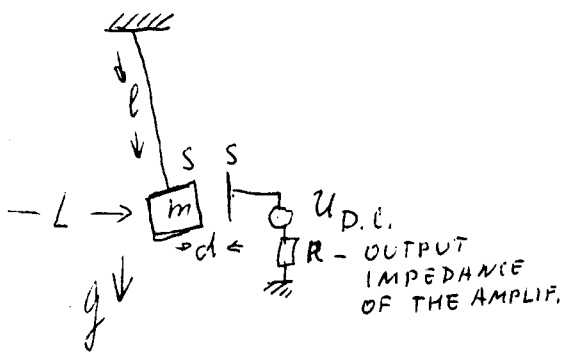 l
S S
L m U D.C.
d R - OUTPUT
IMPEDANCE
OF THE AMPLIF.
g